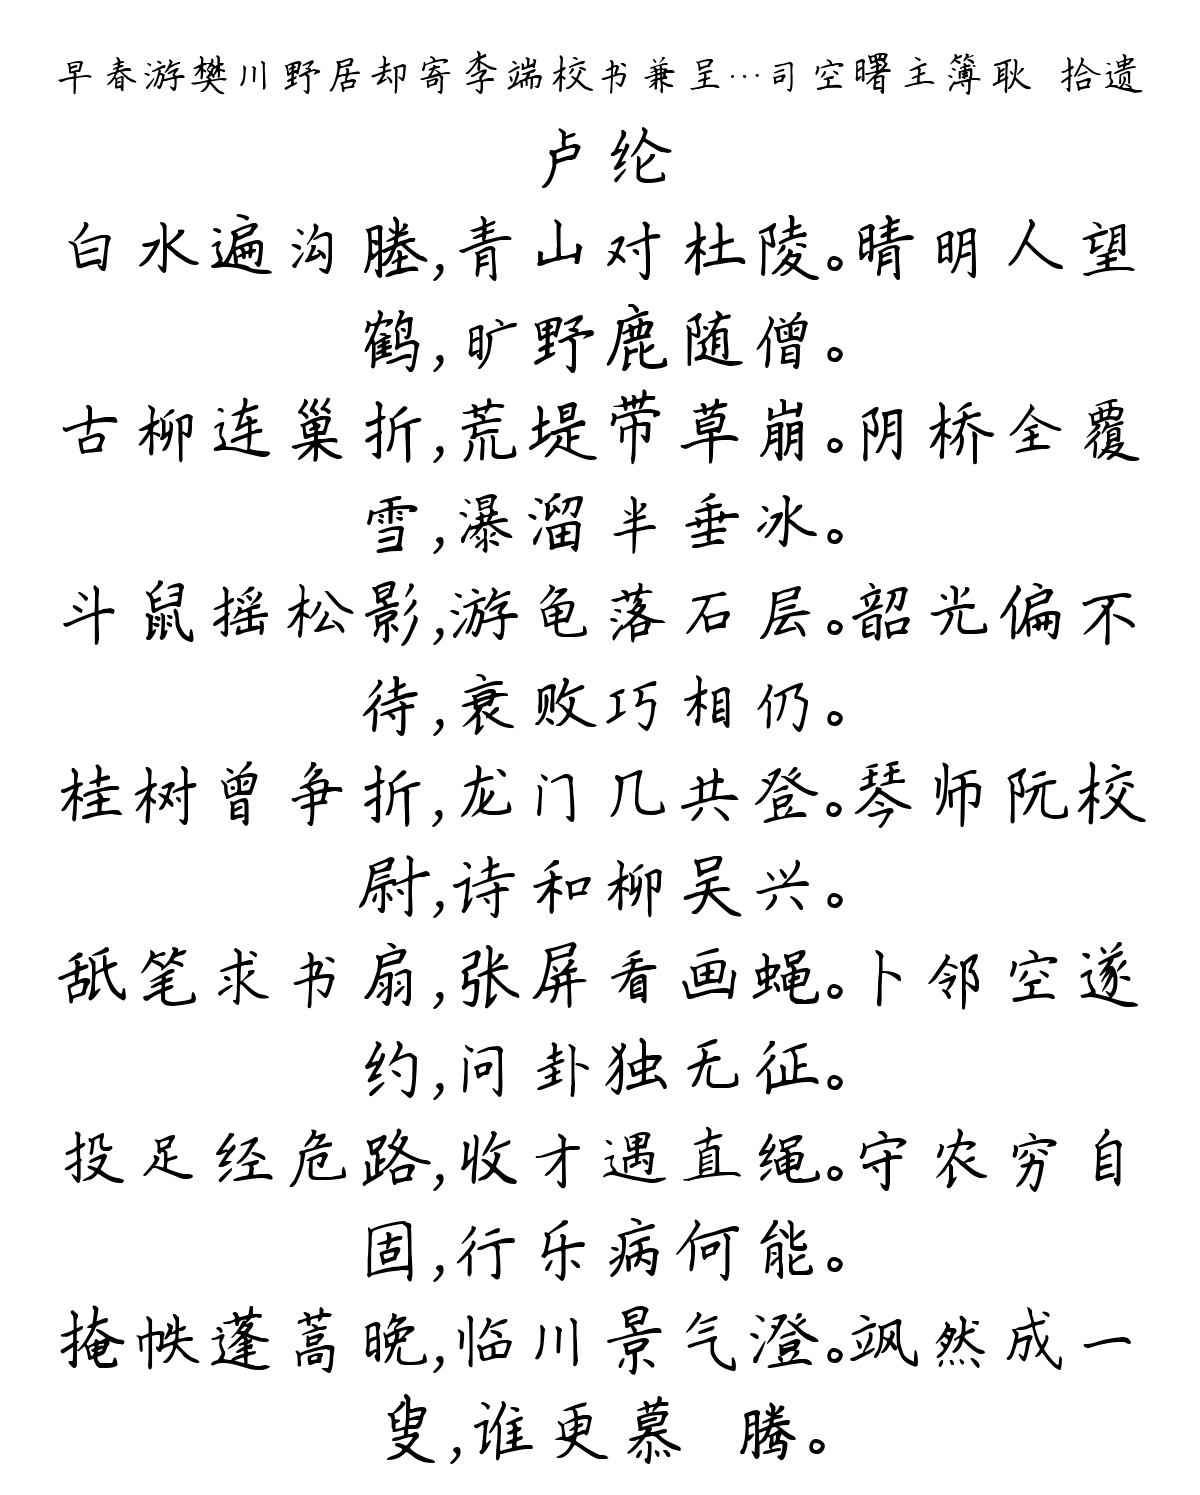 早春游樊川野居却寄李端校书兼呈…司空曙主簿耿 拾遗
卢纶
白水遍沟塍,青山对杜陵。晴明人望
鹤,旷野鹿随僧。
古柳连巢折,荒堤带草崩。阴桥全覆
雪,瀑溜半垂冰。
斗鼠摇松影,游龟落石层。韶光偏不
待,衰败巧相仍。
桂树曾争折,龙门几共登。琴师阮校
尉,诗和柳吴兴。
舐笔求书扇,张屏看画蝇。卜邻空遂
约,问卦独无征。
投足经危路,收才遇直绳。守农穷自
固,行乐病何能。
掩帙蓬蒿晚,临川景气澄。飒然成一
叟,谁更慕 腾。